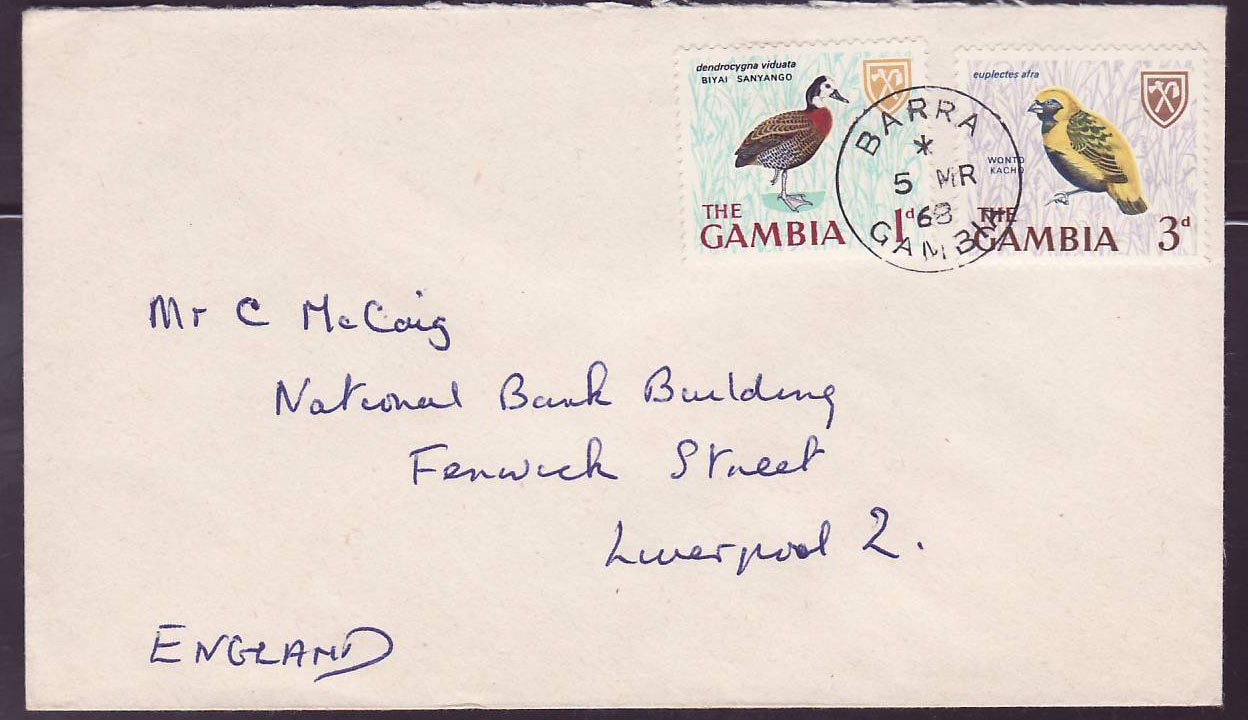 dendrocygna viduata
BIYAI SANYANGO
THE
GAMBIA 1d
euplectes afra
WONTO
KACHO
THE
GAMBIA 3d
BARRA
*
5 MR
68
GAMBIA
Mr C McCaig
National Bank Building
Fenwick Street
Liverpool 2.
ENGLAND